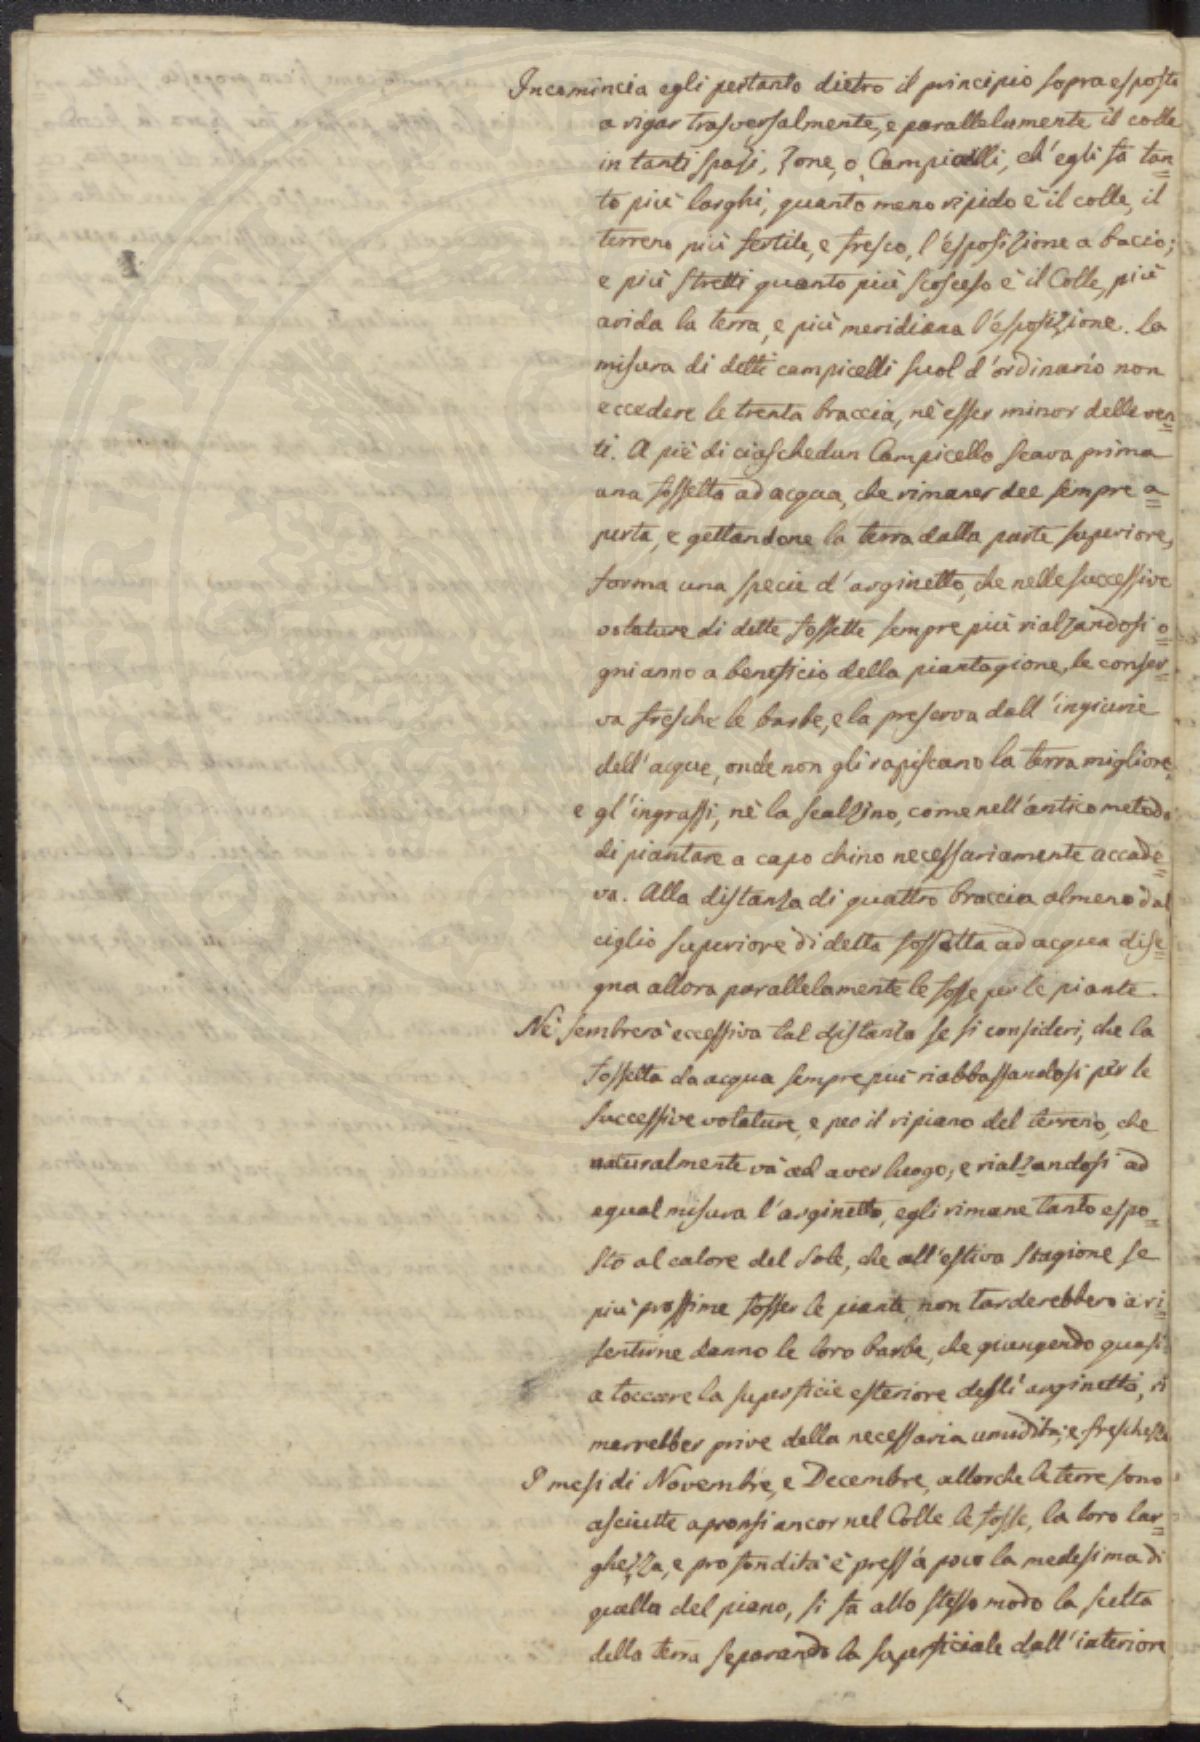 Incomincia egli pertanto dietro il principio sopraesposto
a rigar trasversalmente, e parallelamente il colle
in tanti spazi, Zone, o Campicelli, ch'egli fà tan=
to più larghi, quanto meno ripido è il colle, il
terreno più fertile, e fresco, l'esposizione a bacio;
e più stretti quanto più scosceso è il Colle, più
arida la terra, e più meridiana l'esposizione. La
misura di detti campicelli suol d'ordinario non
eccedere le trenta braccia, nè esser minor delle ven=
ti. A piè di ciaschedun Campicello scava prima
una fossetta ad acqua, che rimaner dee sempre a=
perta, e gettandone la terra dalla parte superiore,
forma una specie d'arginetto, che nelle successive
votature di dette fossette sempre più rialzandosi o=
gni anno a beneficio della piantagione, le conser=
va fresche le barbe, e la preserva dall'ingiurie
dell'acque, onde non gli rapiscano la terra migliore,
e gl'ingrassi, nè la scalzino, come nell'antico metodo
di piantare a capo chino necessariamente accade=
va. Alla distanza di quattro braccia almeno dal
ciglio superiore di detta fossetta ad acqua dise=
gna allora parallelamente le fosse per le piante.
Nè sembrerà eccessiva tal distanza se si consideri, che la
fossetta da acqua sempre più riabbassandosi per le
successive votature, e per il ripiano del terreno, che
naturalmente và ad aver luogo, e rialzandosi ad
egual misura l'arginetto, egli rimane tanto espo=
sto al calore del Sole, che all'estiva stagione se
più prossime fosser le piante non tarderebbero a ri=
sentirne danno le loro barbe, che giungendo quasi
a toccare la superficie esteriore degli arginetti, ri
marrebber prive della necessaria umidità, e freschezza
I mesi di Novembre, e Decembre, allorche le terre sono
asciutte apronsi ancor nel Colle le fosse, la loro lar=
ghezza, e profondità è press'a poco la medesima di
quella del piano, si fà allo stesso modo la scelta
della terra separando la superficiale dall'interiore